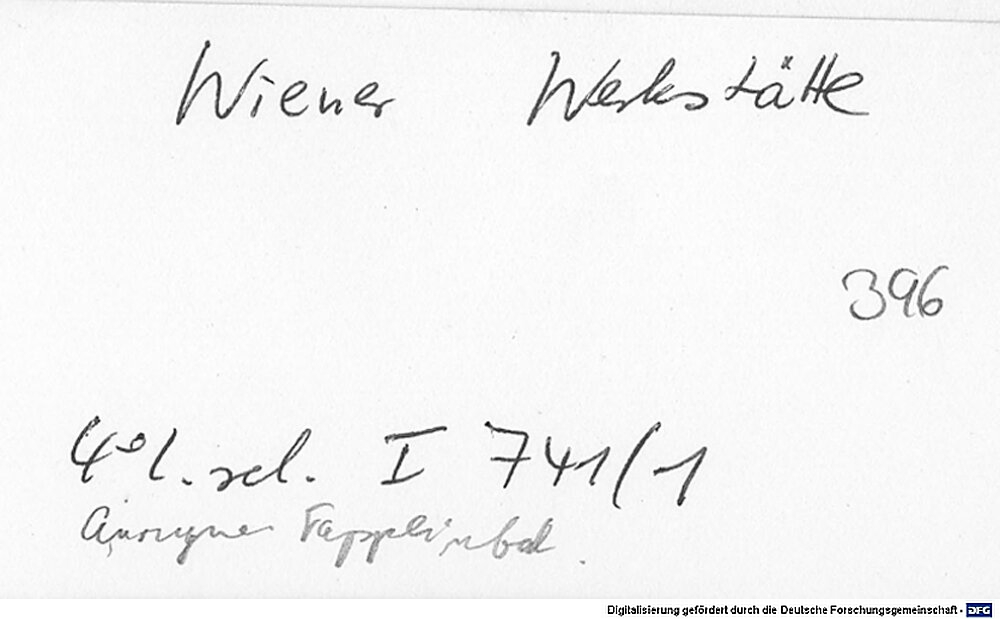 Wiener Werkstätte
396
4° L. sel. I 741/1
Anonymer Pappeinbd.
Digitalisierung gefördert durch die Deutsche Forschungsgemeinschaft - DFG